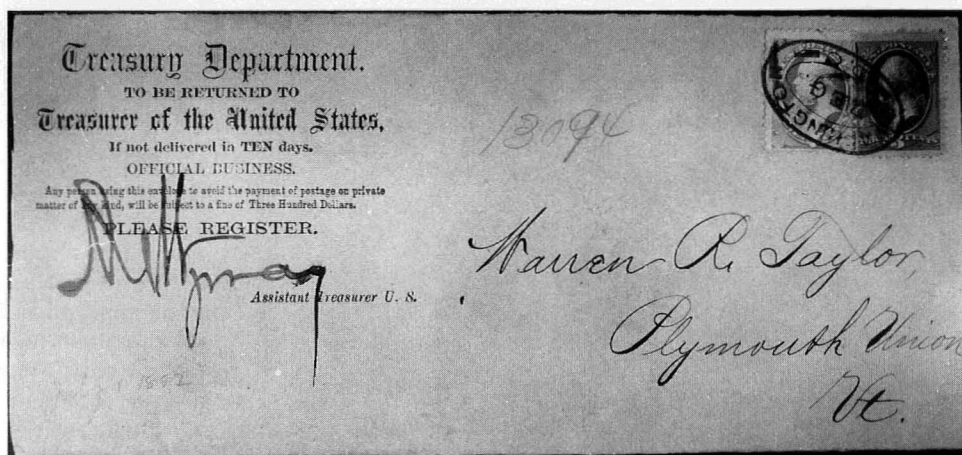 Treasury Department.
TO BE RETURNED TO
Treasurer of the United States,
If not delivered in TEN days.
OFFICIAL BUSINESS.
Any person using this envelope to avoid the payment of postage on private
matter of any kind, will be subject to a fine of Three Hundred Dollars.
PLEASE REGISTER.
Assistant Treasurer U. S.
13094
Warren R. Taylor,
Plymouth Union
Vt.